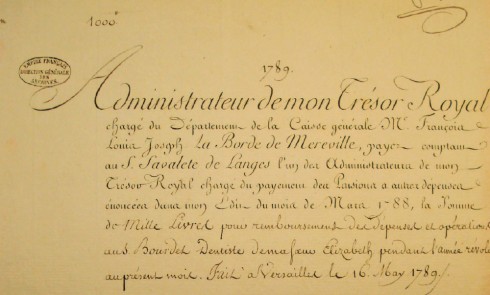 1000
1789.
EMPIRE FRANÇAIS
DIRECTION GÉNÉRALE
DES
ARCHIVES
Administrateur de mon Trésor Royal
chargé du Département de la Caisse générale Mr. François
Louis Joseph La Borde de Mereville, payez comptant
au S. Savalete de Langes l'un des Administrateurs de mon
Trésor Royal chargé du payement des Pensions & autres dépenses
énoncées dans mon Edit du mois de Mars 1788, la Somme
de Mille Livres pour remboursement des Dépenses et opérations
au S Bourdet Dentiste de ma sœur Elizabeth pendant l'année revolue
au présent mois. Fait à Versailles le 16. May 1789.